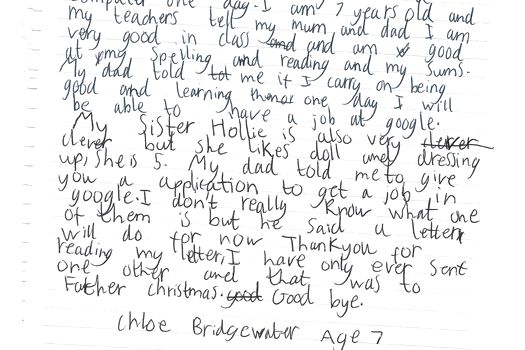 computer one day. I am 7 years old and
my teachers tell my mum and dad I am
very good in class and and am good
at my spelling and reading and my sums.
My dad told me if I carry on being
good and learning one day I will
be able to have a job at google.
My Sister Hollie is also very clever
clever but she likes doll and dressing
up, she is 5. My dad told me to give
you a application to get a job in
google. I don't really know what one
of them is but he said a letter
will do for now Thankyou for
reading my letter, I have only ever sent
one other and that was to
Father christmas. good Good bye.
Chloe Bridgewater Age 7